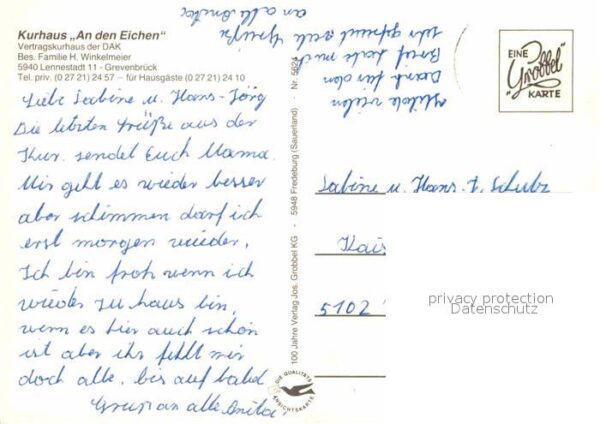 Kurhaus „An den Eichen“
Vertragskurhaus der DAK
Bes. Familie H. Winkelmeier
5940 Lennestadt 11 - Grevenbrück
Tel. priv. (0 27 21) 24 57 – für Hausgäste (0 27 21) 24 10
Liebe Sabine u. Hans-Jörg
Die letzten Grüße aus der
Kur. sendet Euch Mama.
Mir geht es wieder besser
aber schwimmen darf ich
erst morgen wieder.
Ich bin froh wenn ich
wieder zu haus bin,
wenn es hier auch schön
ist aber ihr fehlt mir
doch alle. bis auf bald
Gruß an alle Anita
vielen
Dank für den
Brief habe mich
sehr gefreut viele Grüße
an alle Anita
100 Jahre Verlag Jos. Grobbel KG - 5948 Fredeburg (Sauerland) Nr. 5694
DIE QUALITÄTS ANSICHTSKARTE
EINE
„Grobbel“
KARTE
Sabine u. Hans. J. Schulz
Kais
5102
privacy protection
Datenschutz